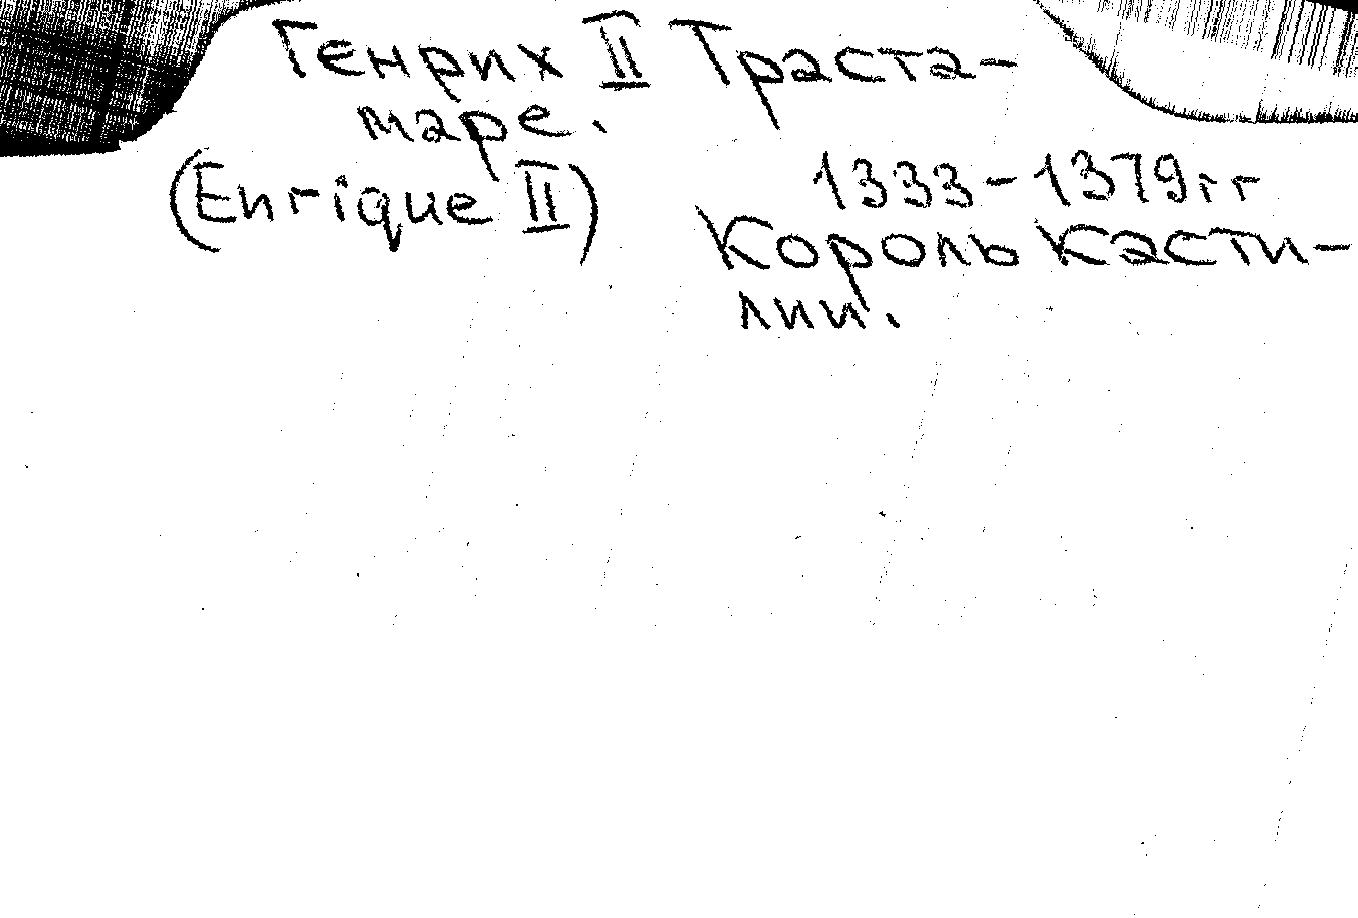 Генрих II Траста-
маре.
(Enrique II)
1333-1379гг
Король Касти-
лии.